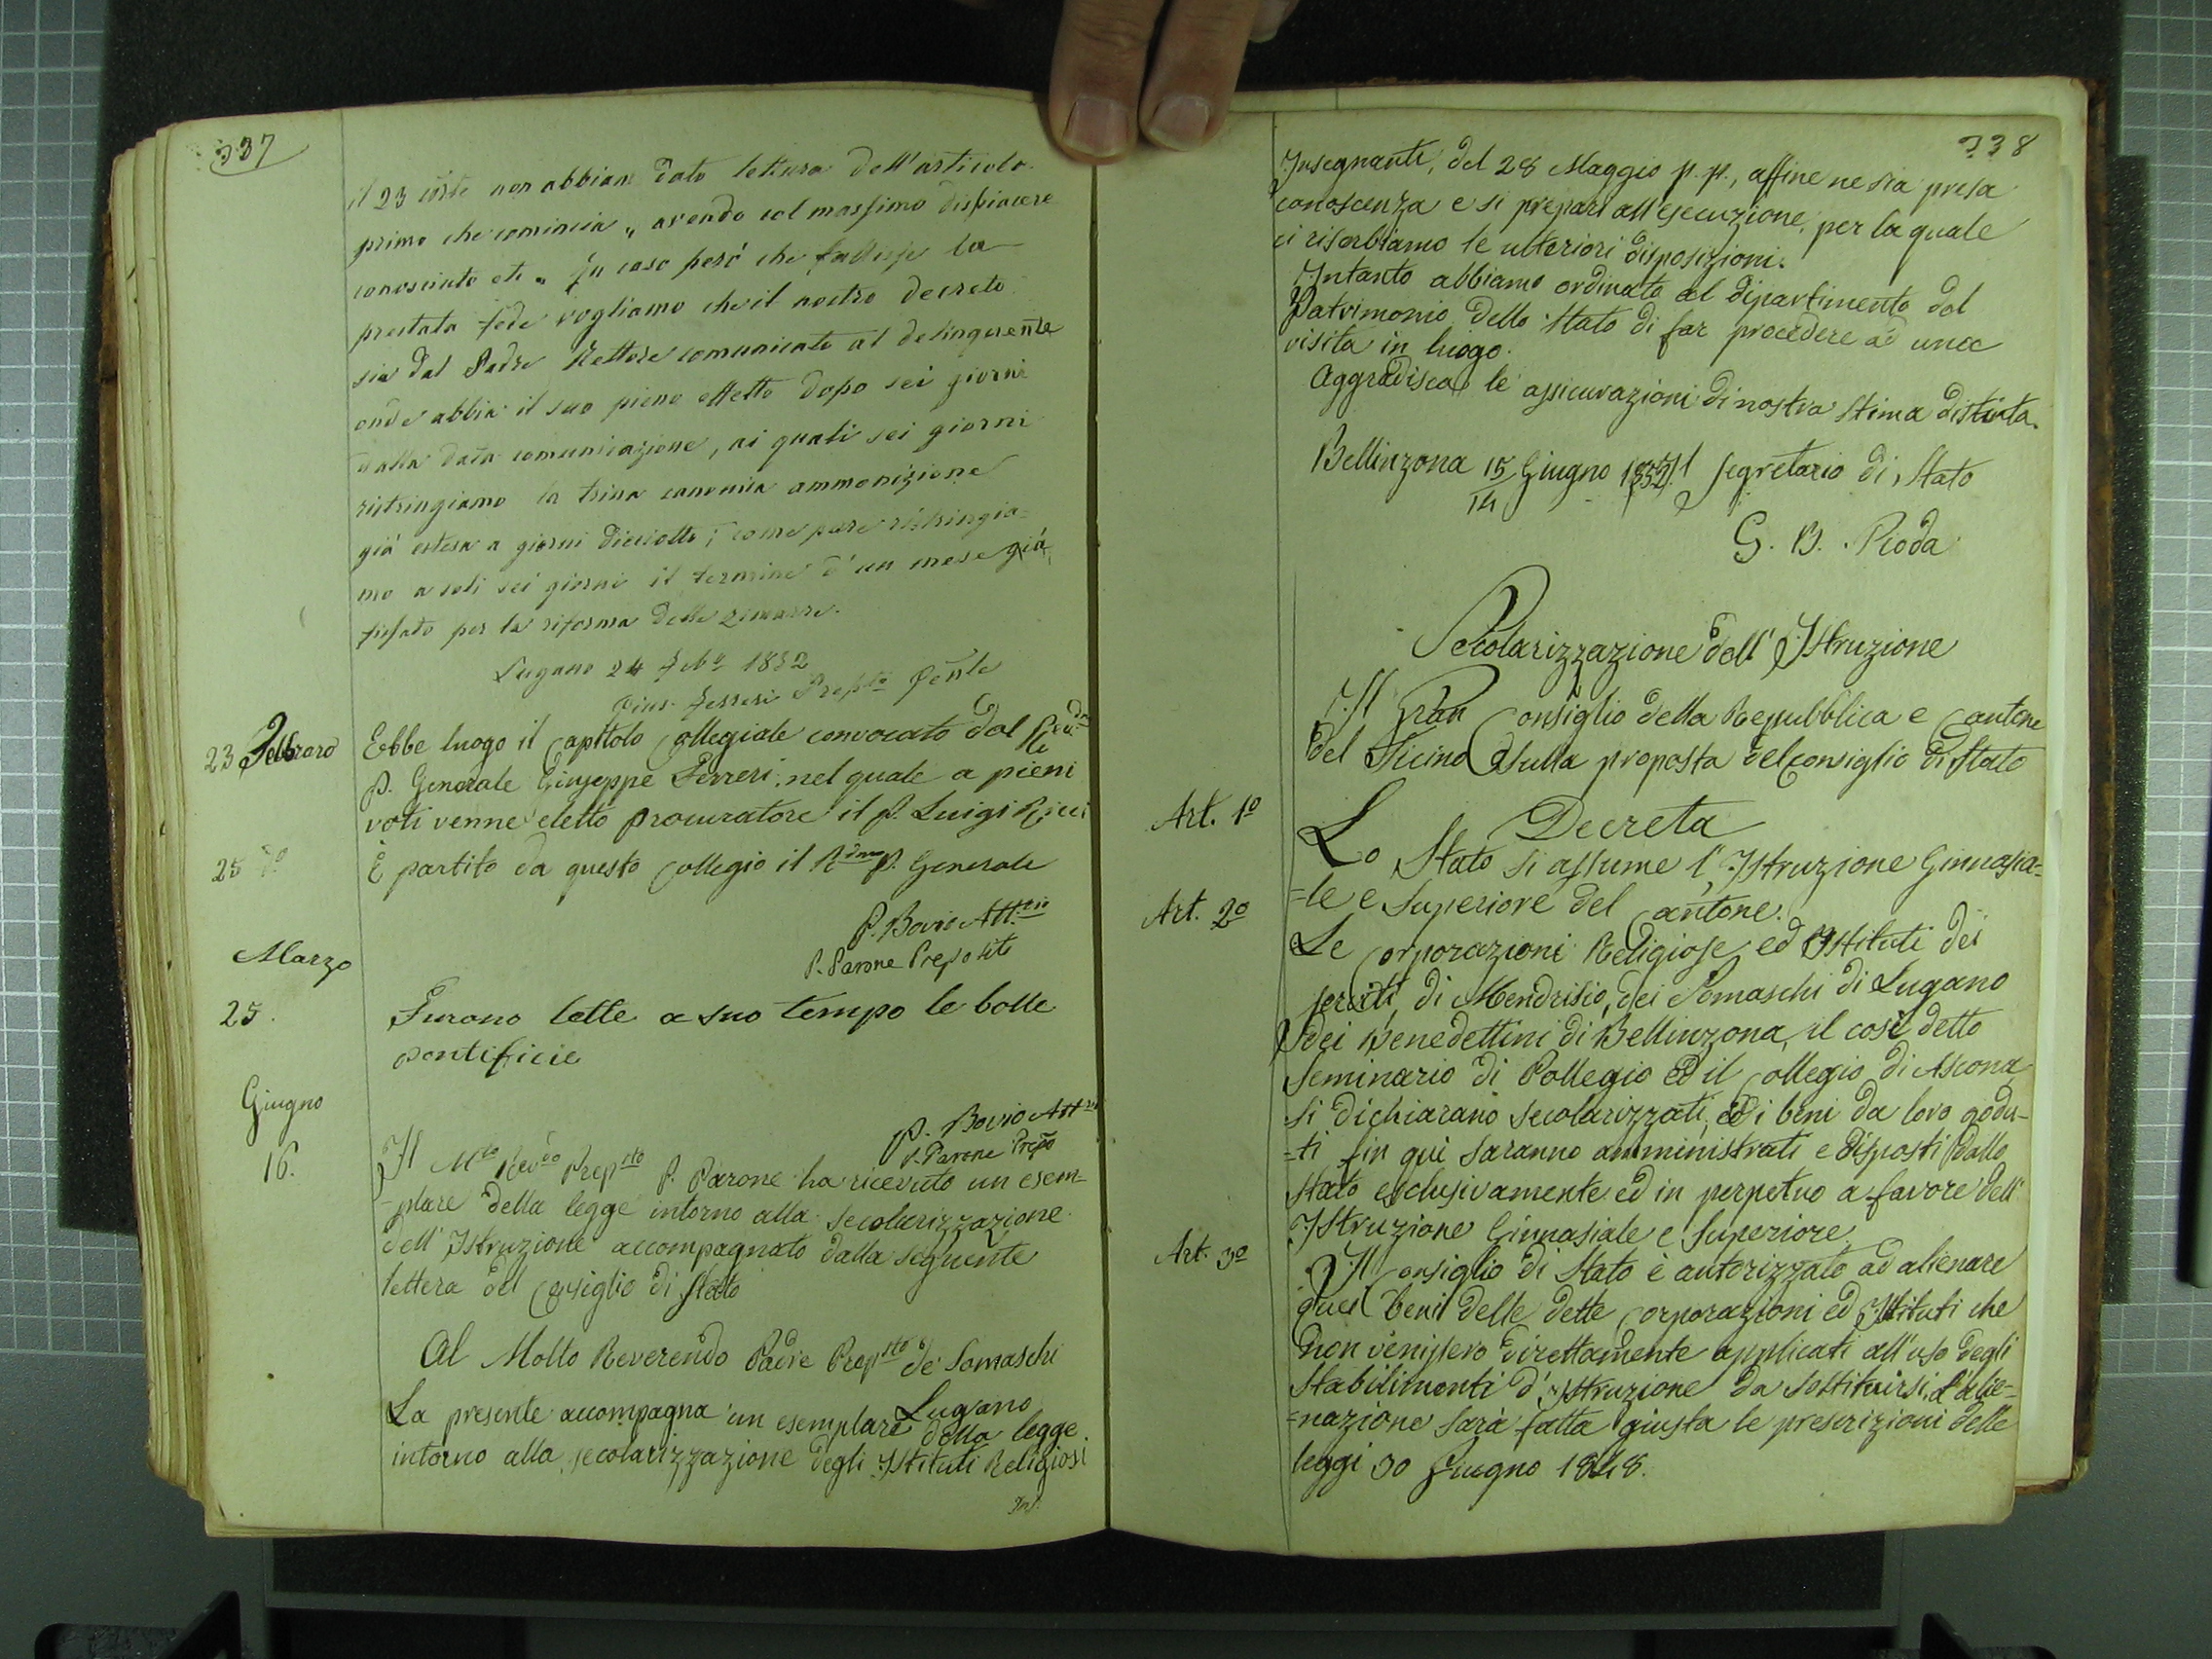 337
il 23 corre non abbiam dato lettura dell'articolo
primo che comincia „ avendo col massimo dispiacere
conosciuto etc „ In caso però che fallisse la
prestata fede vogliamo che il nostro decreto
sia dal Padre Rettore comunicato al delinquente
onde abbia il suo pieno effetto dopo sei giorni
dalla data comunicazione, ai quali sei giorni
ristringiamo la trina canonica ammonizione
già estesa a giorni dieciotto; come pure ristringia-
mo a soli sei giorni il termine d'un mese già
fissato per la riforma delle zimarre.
Lugano 24 Febo 1852
Gius. Ferreri Prepto Genle
23 Febbraro
Ebbe luogo il Capitolo Collegiale convocato dal
P. Generale Giuseppe Ferreri, nel quale a pieni
voti venne eletto procuratore il P. Luigi Ricci
25 do
È partito da questo Collegio il Rdmo P. Generale
P. Bovio Attrio
P. Parone Preposito
Marzo
25.
Furono lette a suo tempo le bolle
pontificie
P. Bovio Att
P. Parone Prepo
Giugno
16.
Il Mto Revdo Prepsto P. Parone ha ricevuto un esem-
-plare della legge intorno alla secolarizzazione
dell'Istruzione accompagnato dalla seguente
lettera del Consiglio di Stato
Al Molto Reverendo Padre Prepsto de' Somaschi
Lugano
La presente accompagna un esemplare della legge
intorno alla secolarizzazione degli Istituti Religiosi
Ins.
338
Insegnanti, del 28 Maggio p. p., affine ne sia presa
conoscenza e si prepari all'esecuzione, per la quale
ci riserbiamo le ulteriori disposizioni.
Intanto abbiamo ordinato al dipartimento del
Patrimonio dello Stato di far procedere ad una
visita in luogo.
Aggradisca le assicurazioni di nostra stima distinta.
Bellinzona 15/14 Giugno 1852 Il Segretario di Stato
G. B. Pioda
Secolarizzazione dell'Istruzione
Il Gran Consiglio della Repubblica e Cantone
del Ticino Sulla proposta del Consiglio di Stato
Decreta
Art. 1o
Lo Stato si assume l'Istruzione Ginnasia=
=le e Superiore del Cantone.
Art. 2o
Le Corporazioni Religiose ed Istituti dei
serviti di Mendrisio, dei Somaschi di Lugano
dei Benedettini di Bellinzona, il così detto
Seminario di Pollegio ed il Collegio di Ascona
si dichiarano secolarizzati, ed i beni da loro godu-
-ti fin qui saranno amministrati e disposti dallo
Stato esclusivamente ed in perpetuo a favore dell'
Istruzione Ginnasiale e Superiore.
Art. 3o
Il Consiglio di Stato è autorizzato ad alienare
quei beni delle dette Corporazioni ed Istituti che
non venissero direttamente applicati all'uso degli
Stabilimenti d'Istruzione da sostituirsi. L'alie=
=nazione sarà fatta giusta le prescrizioni delle
leggi 30 Giugno 1848.